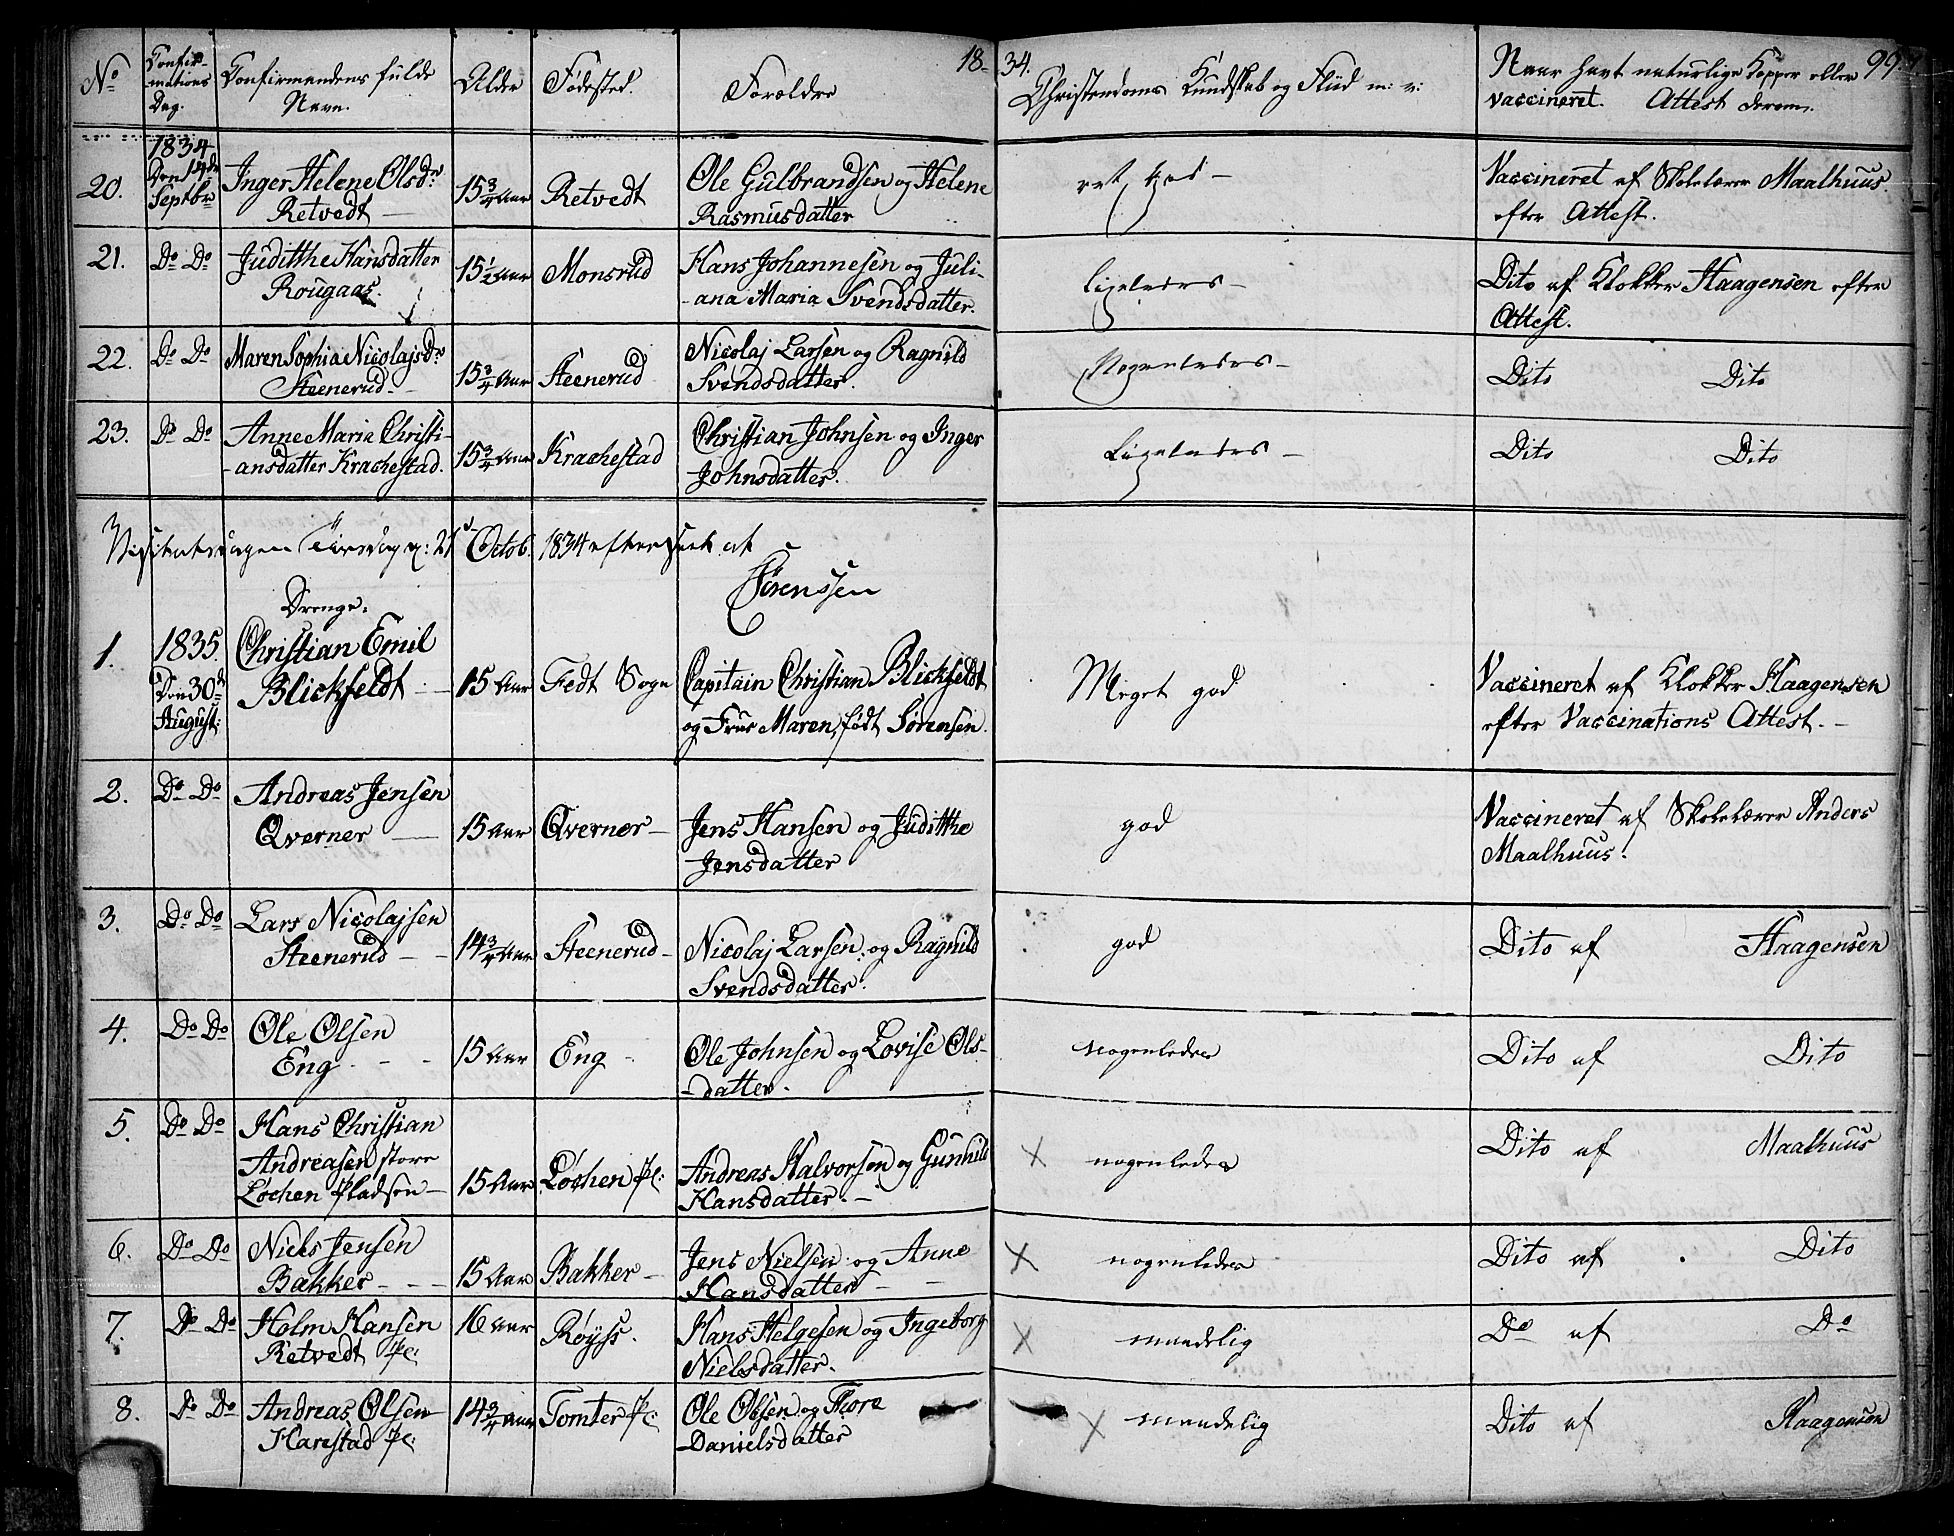 18 34. 99.
No Confirmations Dag. Confirmandens fulde Navn. Alder Fødested. Forældre Christendoms Kundskab og Fliid m: v: Naar havt naturlige Kopper eller vaccineret. Attest derom.
20. 1834 Den 14de Septbr Inger Helene Olsdr. Retvedt 15 3/4 Aar Retvedt Ole Gulbrandsen og Helene Rasmusdatter ret god - Vaccineret af Skolelærer Maalhuus efter Attest.
21. Do Do Juditthe Hansdatter Rougaas. 15 1/2 Aar Monsrud Hans Johannesen og Juli-ana Maria Svendsdatter. ligeledes - Dito af Klokker Haagensen efter Attest.
22. Do Do Maren Sophia Nicolajsdr. Steenerud 15 3/4 Aar Steenerud Nicolaj Larsen og Ragnild Svendsdatter. Nogenledes - Dito Dito
23. Do Do Anne Maria Christi-ansdatter Krachestad. 15 3/4 Aar Krachestad Christian Johnsen og Inger Johnsdatter. Ligeledes - Dito Dito
Visitatsdagen Tirsdag d: 21 Octob. 1834 efterseet af
Sørenssen
Drenge.
1. 1835. Den 30te August: Christian Emil Blickfeldt 15 Aar Fedt Sogn Capitain Christian Blickfeldt og Frue Maren, født Sørensen. Meget god Vaccineret af Klokker Haagensen efter Vaccinations Attest. -
2. Do Do Andreas Jensen Qverner 15 Aar Qverner Jens Hansen og Juditthe Jensdatter god Vaccineret af Skolelærer Anders Maalhuus.
3. Do Do Lars Nicolajsen Steenerud 14 3/4 Aar Steenerud Nicolaj Larsen og Ragnild Svendsdatter. god Dito af Haagensen
4. Do Do Ole Olsen Eng 15 Aar Eng Ole Johnsen og Lovise Ols-datter. nogenledes Dito af Dito
5. Do Do Hans Christian Andreasen store Løchen Pladsen 15 Aar Løchen Pl: Andreas Halvorsen og Gunhild Hansdatter. - X nogenledes Dito af Maalhuus
6. Do Do Niels Jensen Bakker 15 Aar Bakker Jens Nielsen og Anne Hansdatter X nogenledes Dito af Dito
7. Do Do Holm Hansen Retvedt Pl: 16 Aar Røyss. Hans Helgesen og Ingeborg Nielsdatter. X maadelig Do af Do
8. Do Do Andreas Olsen Harestad Pl: 14 3/4 Aar Tomter Pl: Ole Olsen og Thore Danielsdatter X maadelig Dito af Haagensen